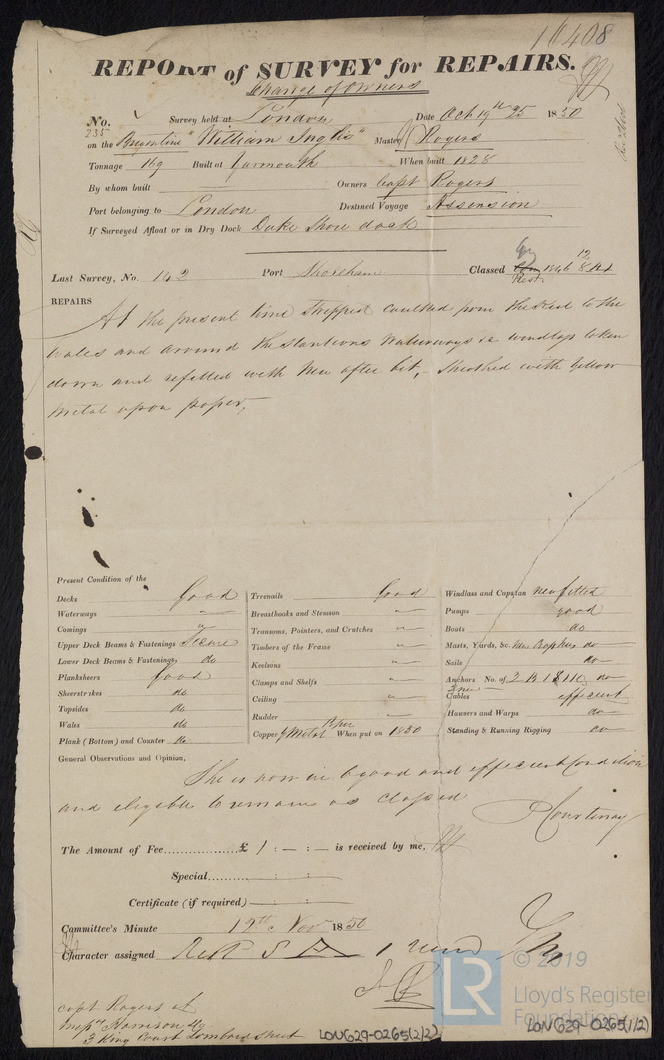 16408
REPORT of SURVEY for REPAIRS.
Change of owners
No. 235 Survey held at London Date Oct 19th 25 1850
on the Brigantine "William Inglis" Master J Rogers
Tonnage 169 Built at Yarmouth When built 1828
By whom built Owners Capt Rogers
Port belonging to London Destined Voyage Assension
If Surveyed Afloat or in Dry Dock Duke Shore dock
Last Survey, No. 142 Port Shoreham Classed 1846
REPAIRS
At the present time Stripped Caulked from the Keel to the
Wales and around the Stantions Waterways &c windlass taken
down and refitted with New after bit, Sheathed with Yellow
Metal upon paper,
Present Condition of the
Decks Good
Waterways "
Comings "
Upper Deck Beams & Fastenings Secure
Lower Deck Beams & Fastenings do
Planksheers Good
Sheerstrakes do
Topsides do
Wales do
Plank (Bottom) and Counter do
Treenails Good
Breasthooks and Stemson "
Transoms, Pointers, and Crutches "
Timbers of the Frame "
Keelsons "
Clamps and Shelfs "
Ceiling "
Rudder "
Copper Y Metal When put on 1850
Windlass and Capstan new fitted
Pumps good
Boats do
Masts, Yards, &c. do
Sails do
Anchors No. of 2 B 1 S 1 K do
Cables efficient
Hawsers and Warps do
Standing & Running Rigging do
General Observations and Opinion,
She is now in a good and efficient Condition
and eligible to remain as Classed
Courtenay
The Amount of Fee £ 1 : — : — is received by me,
Special : :
Certificate (if required) : :
Committee's Minute 12th Novr 1850
Character assigned
capt Rogers at
Messrs Harrison &c
3 King Court Lombard Street
LON629-0265(2/2)
LR © 2019
Lloyd's Register
Foundation
LON629-0265(1/2)